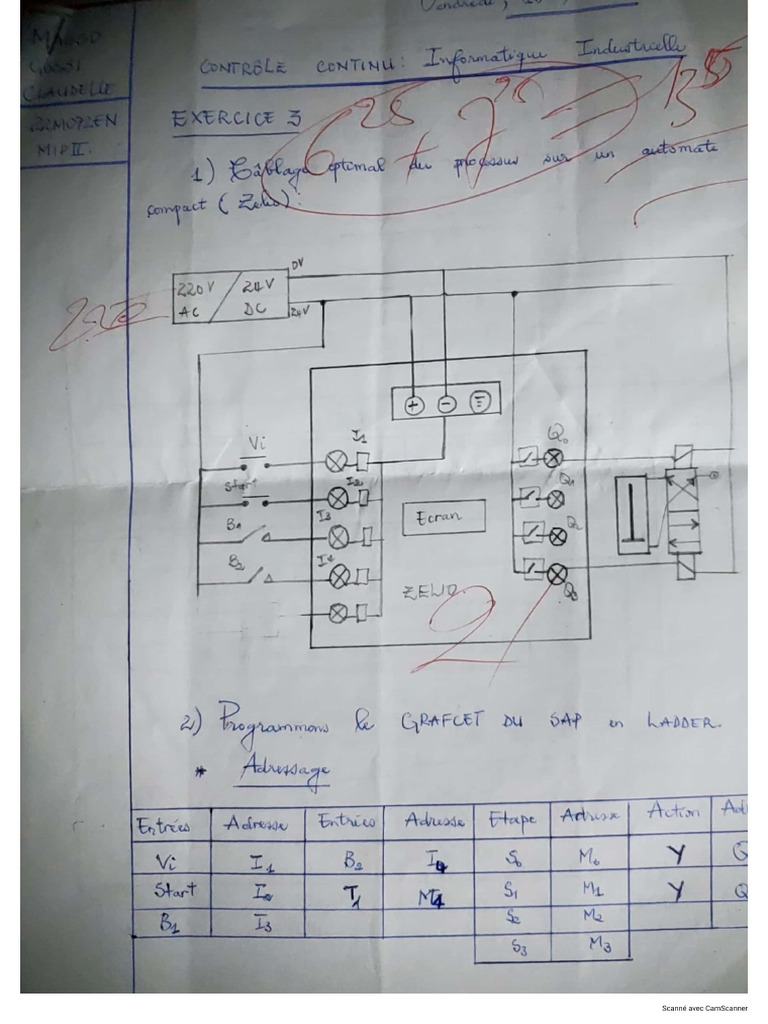 Vendredi,
CLAUDELLE
22M092EN
MIP II.
CONTRÔLE CONTINU: Informatique Industrielle
EXERCICE 3
1) Câblage optimal du processus sur un automate
compact (Zelio):
220V AC / 24V DC
0V
24V
+ -
Vi
Start
B1
B2
I1
I2
I3
I4
Ecran
ZELIO
Q0
Q1
Q2
Q3
2) Programmons le GRAFCET DU SAP en LADDER.
* Adressage
Entrées Adresse Entrées Adresse Etape Adresse Action Ad
Vi I1 B2 I4 S0 M0 Y Q
Start I2 T1 S1 M1 Y Q
B1 I3 S2 M2
S3 M3
Scanné avec CamScanner